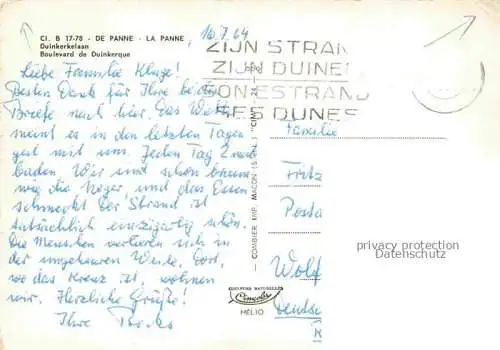 Cl. B 17-78 - DE PANNE - LA PANNE
Duinkerkelaan
Boulevard de Duinkerque
10.7.64
ZIJN STRAN
ZIJN DUINE
SON ESTRAND
SES DUNES
Liebe Familie Kluge!
Besten Dank für Ihre beiden
Briefe nach hier. Das Wetter
meint es in den letzten Tagen
gut mit uns. Jeden Tag 2 mal
baden. Wir sind schön braun
wie die Neger und das Essen
schmeckt. Der Strand ist
tatsächlich einzigartig schön.
Die Menschen verlieren sich in
der ungeheuren Weite. Dort,
wo das Kreuz ist, wohnen
wir. Herzliche Grüße!
Ihre
COMBIER IMP. MACON (S.-&-L.) "CIM"
COULEURS NATURELLES
Cimcolor
HELIO
Familie
Fritz
Posta
Wolf
Deutsc
privacy protection
Datenschutz